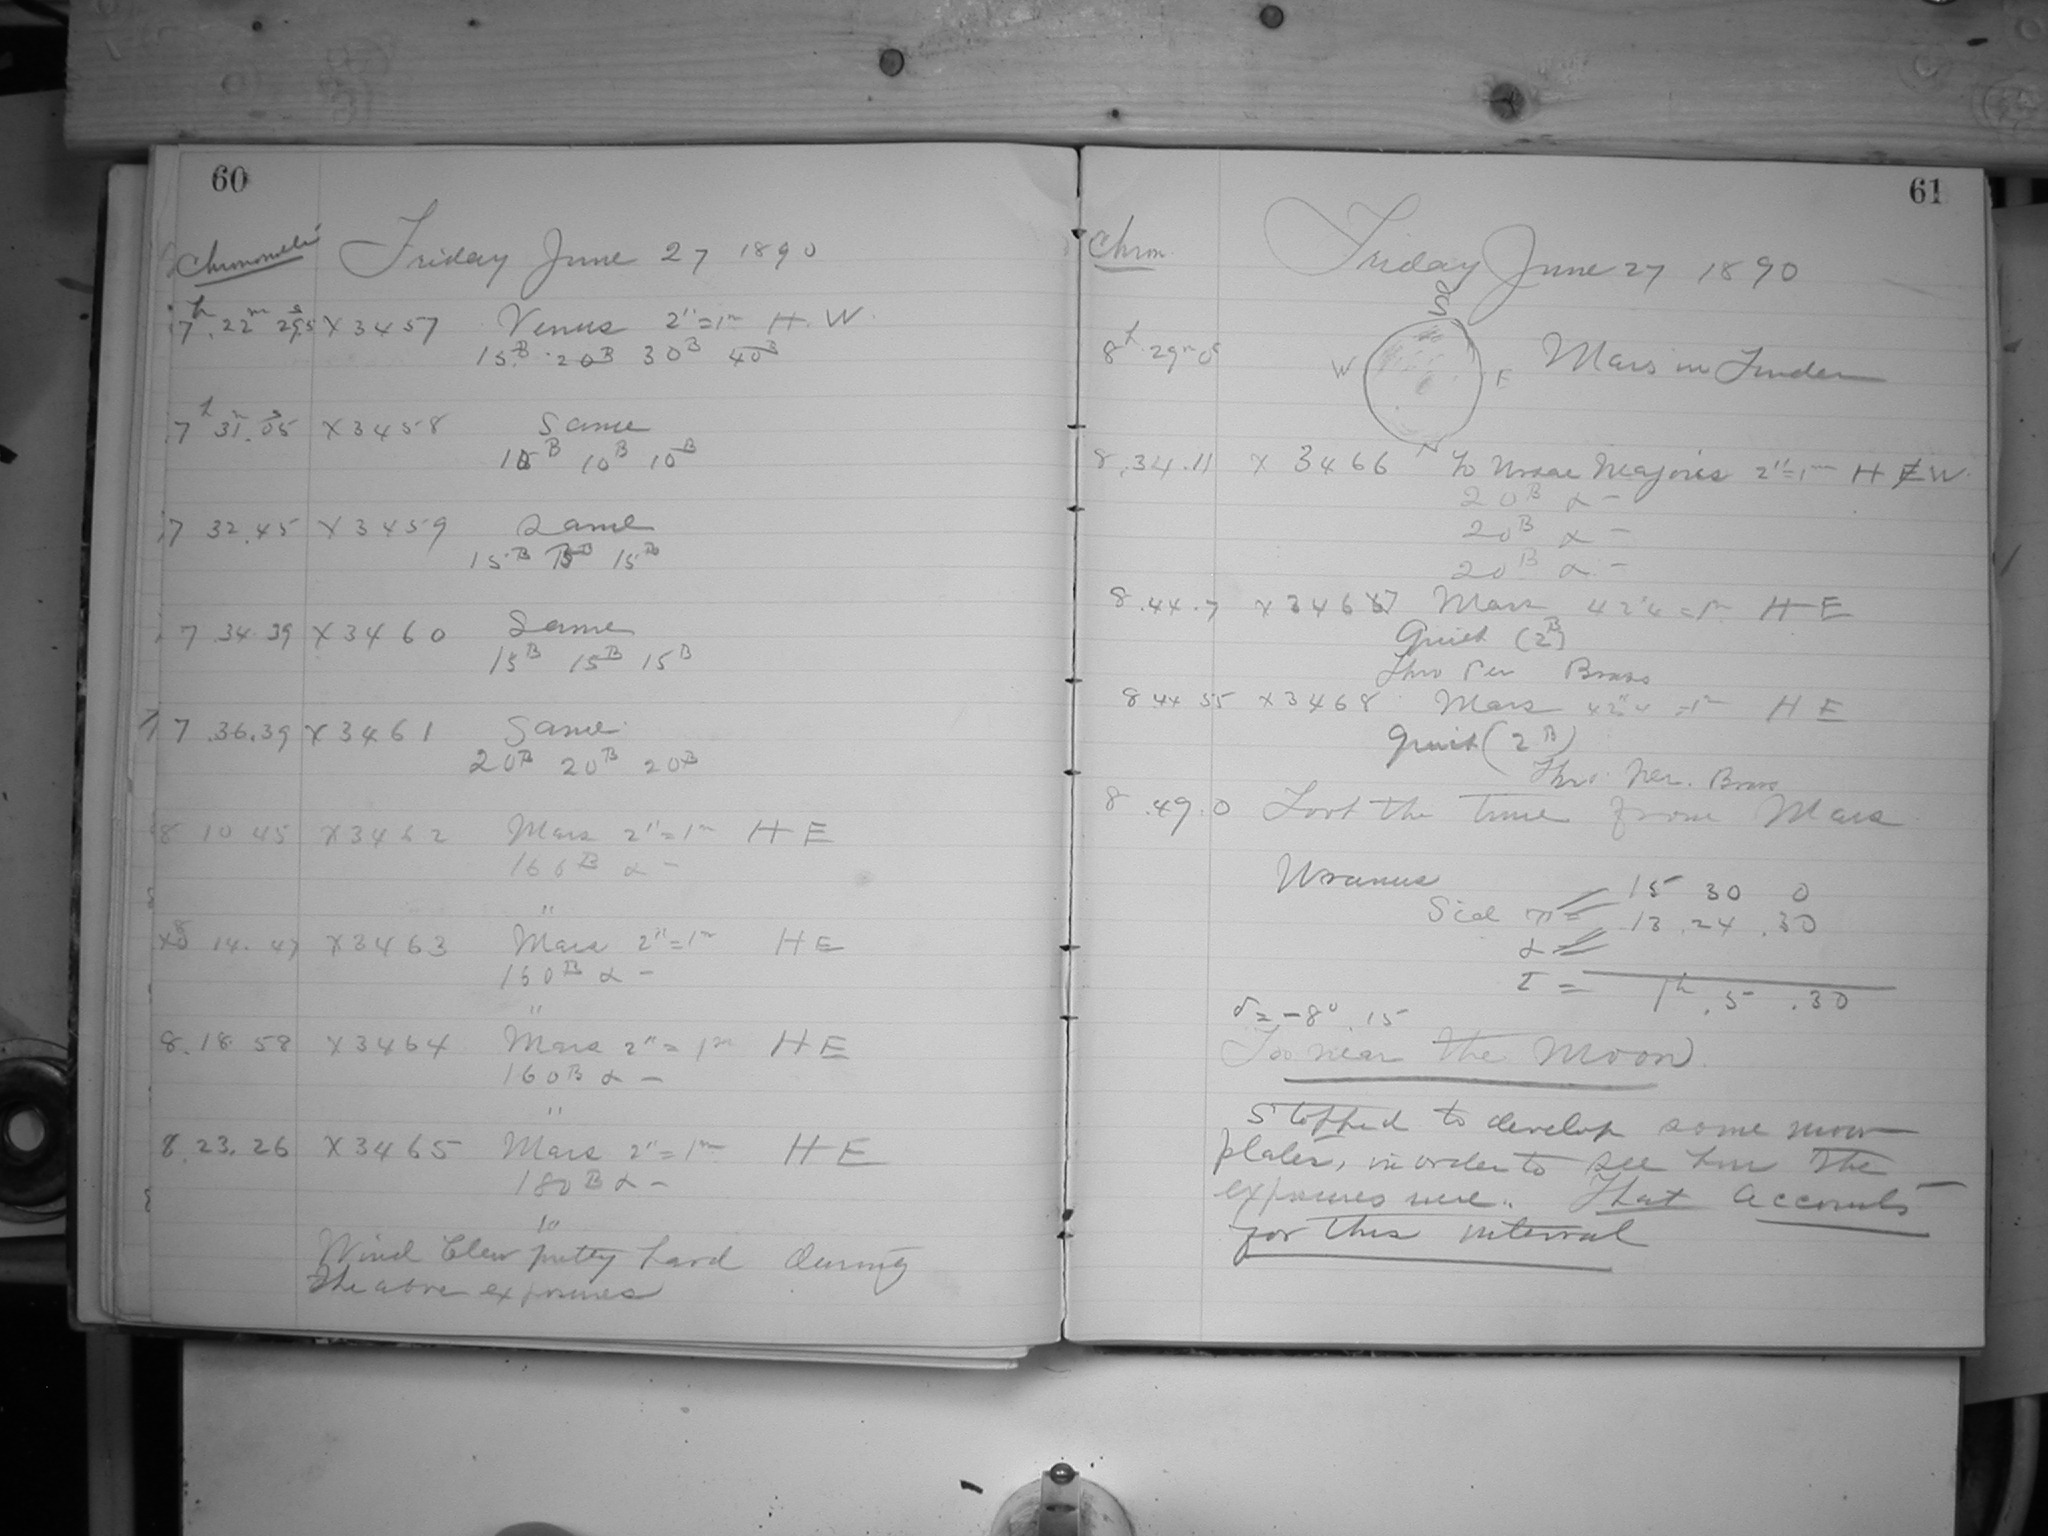 60
Chronometer Friday June 27 1890
7h. 22m 29.5s X 3457 Venus 2" = 1m H. W.
15B 20B 30B 40B
7h 31m. 05s X 3458 Same
10B 10B
7 32.45 X 3459 Same
15B 15B 15B
7 34 39 X 3460 Same
15B 15B 15B
7.36.39 X 3461 Same
20B 20B 20B
8 10 45 X 3462 Mars 2" = 1m H E
α -
"
8 14. 47 X 3463 Mars 2" = 1m H E
160B α -
"
8.18 58 X 3464 Mars 2" = 1m H E
160B α -
"
8.23.26 X 3465 Mars 2" = 1m H E
180B α -
Wind blew pretty hard during
the above exposures
61
Chron. Friday June 27 1890
S
8h 29m 0s W E Mars in Finder
N
8.34.11 X 3466 Ursae Majoris 2" = 1m H W.
20B α -
20B α -
20B α -
8.44.7 X 3467 Mars = 1m H E
Quick (2B)
Thro Brass
8 44 55 X 3468 Mars = 1m H E
Quick (2B)
Thro. Brass
8.49.0 Lost the time from Mars
Uranus 15 30 0
Sid = 13.24.30
α =
τ = 1h.5.30
δ = -8°.15
Too near the Moon.
Stopped to develop some more
plates, in order to see how the
exposures were. That accounts
for this interval